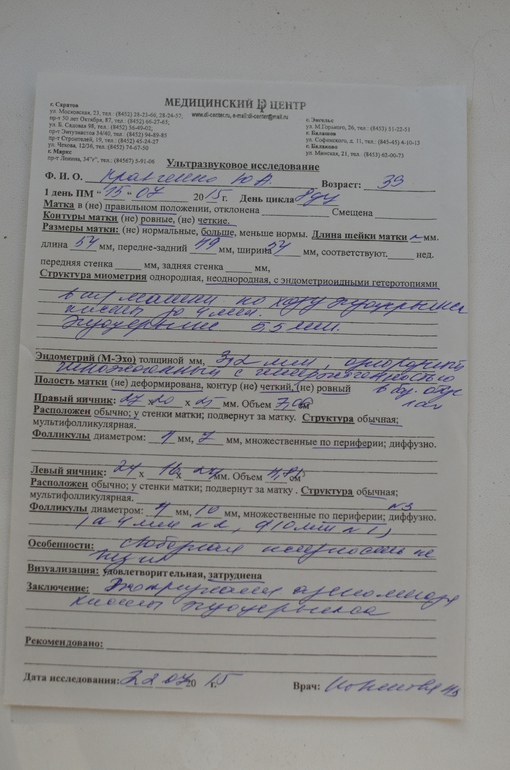 МЕДИЦИНСКИЙ ЦЕНТР
www.di-center.ru, e-mail:di-center@mail.ru
г. Саратов
ул. Московская, 23, тел.: (8452) 28-23-66, 28-24-57;
пр-т 50 лет Октября, 87, тел.: (8452) 66-27-65,
ул. Б. Садовая 98, тел.: (8452) 56-49-02,
пр-т Энтузиастов 54/40, тел.: (8452) 94-89-85
пр-т Строителей, 19, тел.: (8452) 45-24-27
ул. Чехова, 12/36, тел.: (8452) 74-67-50
г. Маркс
пр-т Ленина, 34"г", тел.: (84567) 5-91-06
г. Энгельс
ул. М.Горького, 26, тел.: (8453) 51-22-51
г. Балаково
г. Балаково
ул. Минская, 21, тел.: (8453) 60-00-73
Ультразвуковое исследование
Ф. И. О. Возраст: 39
1 день ПМ "15" 07 2015г. День цикла 8 ду
Матка в (не) правильном положении, отклонена Смещена
Контуры матки (не) ровные, (не) четкие.
Размеры матки: (не) нормальные, больше, меньше нормы. Длина шейки матки мм.
длина 54 мм, передне-задний 49 мм, ширина 54 мм, соответствуют. нед.
передняя стенка мм, задняя стенка мм,
Структура миометрия однородная, неоднородная, с эндометриоидными гетеротопиями
кисты до 4 мм.
эндоцервикс 5,5 мм.
Эндометрий (М-Эхо) толщиной мм, 3,2 мм,
Полость матки (не) деформирована, контур (не) четкий, (не) ровный
Правый яичник: 27 x 20 x 25 мм. Объем 7,06 см
Расположен обычно; у стенки матки; подвернут за матку. Структура обычная;
мультифолликулярная.
Фолликулы диаметром: 4 мм, 7 мм, множественные по периферии; диффузно.
Левый яичник: 24 x 16 x 24 мм. Объем 4,81 см
Расположен обычно; у стенки матки; подвернут за матку. Структура обычная;
мультифолликулярная.
Фолликулы диаметром: 4 мм, 10 мм, множественные по периферии; диффузно.
Особенности: Свободная жидкость не
Визуализация: удовлетворительная, затруднена
Заключение: Эхопризнаки аденомиоза
кисты эндоцервикса
Рекомендовано:
Дата исследования: 22 07 2015 г. Врач: